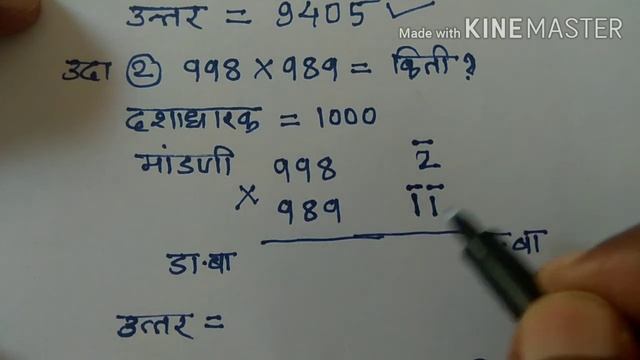 Made with KINEMASTER
उत्तर = 9405 ✓
उदा ② 998 × 989 = किती ?
दशाधारक = 1000
मांडणी 998 2̅
× 989 1̅1̅
डा·बा ·बा
उत्तर =